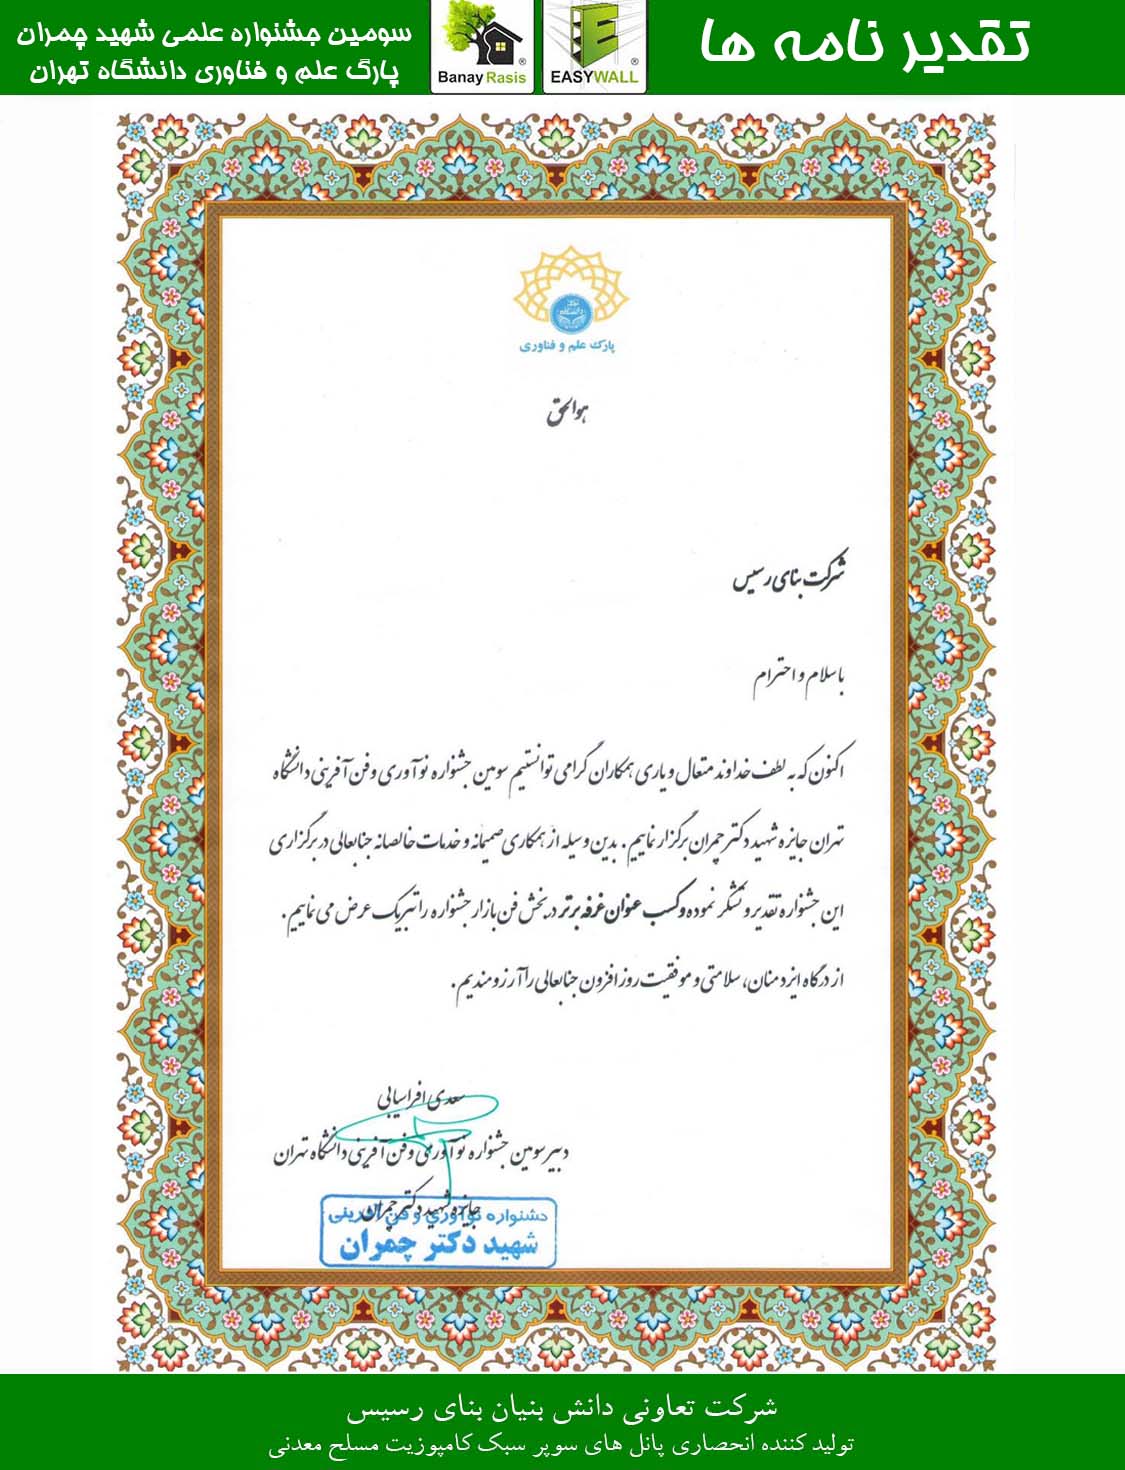 تقدیر نامه ها
سومین جشنواره علمی شهید چمران
پارک علم و فناوری دانشگاه تهران
Banay Rasis ®
EASYWALL ®
پارک علم و فناوری
هوالحق
شرکت بنای رسیس
با سلام و احترام
اکنون که به لطف خداوند متعال و یاری همکاران گرامی توانستیم سومین جشنواره نوآوری و فن آفرینی دانشگاه
تهران جایزه شهید دکتر چمران برگزار نماییم. بدین وسیله از همکاری صمیمانه و خدمات خالصانه جنابعالی در برگزاری
این جشنواره تقدیر و تشکر نموده و کسب عنوان غرفه برتر در بخش فن بازار جشنواره را تبریک عرض می نماییم.
از درگاه ایزد منان، سلامتی و موفقیت روز افزون جنابعالی را آرزومندیم.
سعدی افراسیابی
دبیر سومین جشنواره نوآوری و فن آفرینی دانشگاه تهران
جایزه شهید دکتر چمران
جشنواره نوآوری و فن آفرینی
شهید دکتر چمران
شرکت تعاونی دانش بنیان بنای رسیس
تولید کننده انحصاری پانل های سوپر سبک کامپوزیت مسلح معدنی